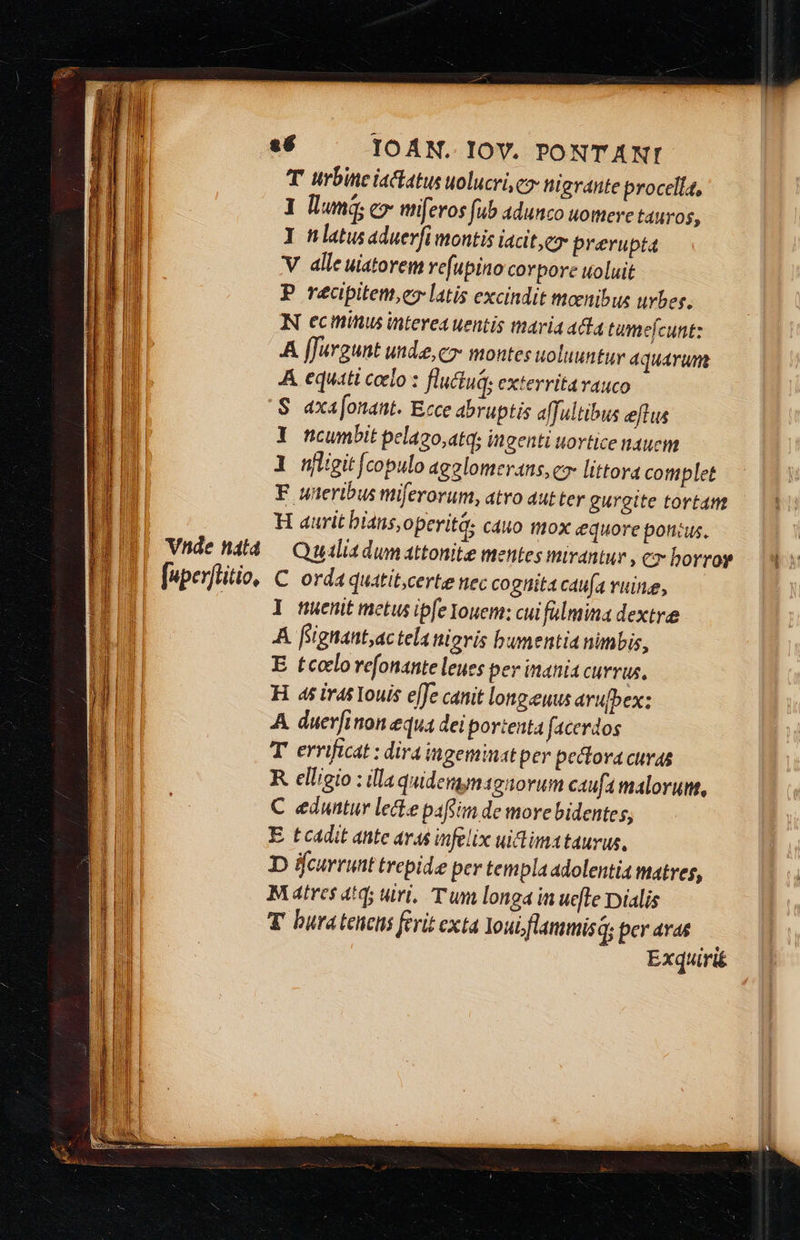 26 IOAN. IOV. PONTANI
T urbine iactatus uolucri, & nigrante procella,
I llumq; & miſeros ſub adunco uomere tauros,
I n latus aduerſi montis iacit, & prærupta
V alle uiatorem reſupino corpore uoluit
P ræcipitem, & latis excindit mœnibus urbes.
N ec minus interea uentis maria acta tumeſcunt:
A ſſurgunt undæ, & montes uoluuntur aquarum
A equati cœlo : fluctuq; exterrita rauco
S axa ſonant. Ecce abruptis aſſultibus æſtus
I ncumbit pelago, atq; ingenti uortice nauem
I nfligit ſcopulo agglomerans, & littora complet
F uneribus miſerorum, atro aut ter gurgite tortam
H aurit hians, operitq; cauo mox æquore pontus.
Vnde nata Qualia dum attonitæ mentes mirantur, & horror
ſuperſtitio, C orda quatit, certæ nec cognita cauſa ruinæ,
I nuenit metus ipſe Iouem: cui fulmina dextræ
A ſsignant, ac tela nigris humentia nimbis,
E t cœlo reſonante leues per inania currus.
H as iras Iouis eſſe canit longæuus aruſpex:
A duerſi non æqua dei portenta ſacerdos
T errificat : dira ingeminat per pectora curas
R elligio : illa quidem magnorum cauſa malorum,
C æduntur lectæ paſsim de more bidentes,
E t cadit ante aras infelix uictima taurus.
D iſcurrunt trepidæ per templa adolentia matres,
M atres atq; uiri. Tum longa in ueſte Dialis
T hura tenens ferit exta Ioui, flammisq; per aras
Exquirit